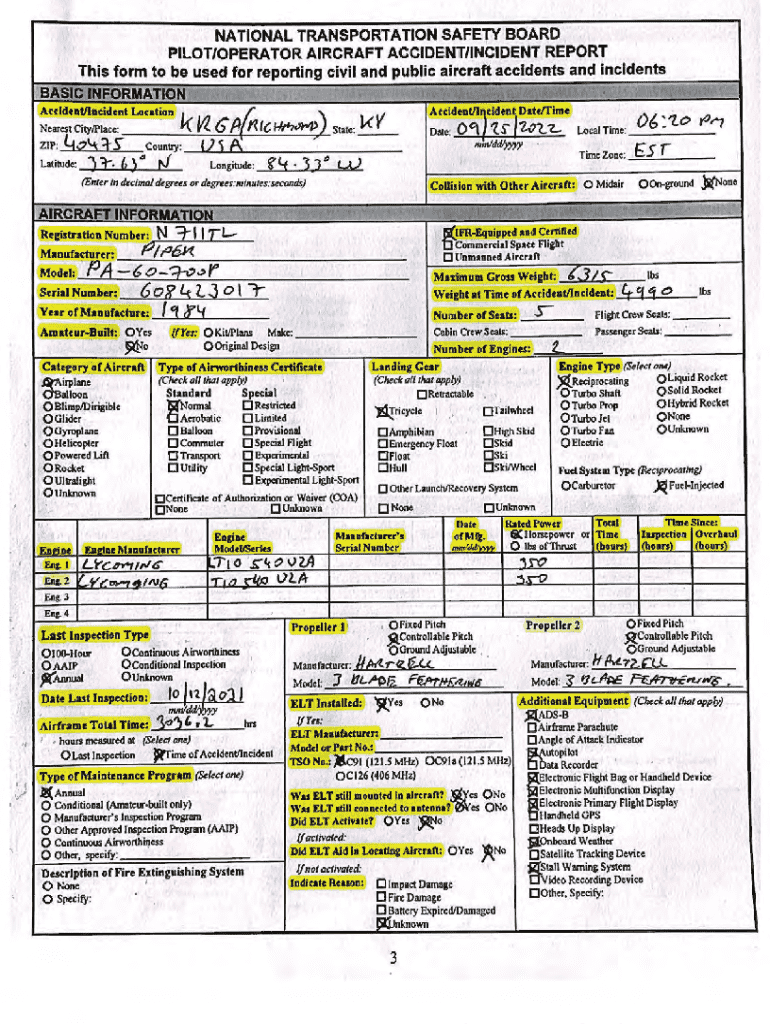 NATIONAL TRANSPORTATION SAFETY BOARD
PILOT/OPERATOR AIRCRAFT ACCIDENT/INCIDENT REPORT
This form to be used for reporting civil and public aircraft accidents and incidents
BASIC INFORMATION
Accident/Incident Location
Nearest City/Place: KRGA (RICHMOND) State: KY
ZIP: 40475 Country: USA
Latitude: 37.63° N Longitude: 84.33° W
(Enter in decimal degrees or degrees:minutes:seconds)
Accident/Incident Date/Time
Date: 09/25/2022 Local Time: 06:20 PM
mm/dd/yyyy
Time Zone: EST
Collision with Other Aircraft: Midair On-ground None
AIRCRAFT INFORMATION
Registration Number: N 711TL
Manufacturer: PIPER
Model: PA-60-700P
Serial Number: 608423017
Year of Manufacture: 1984
Amateur-Built: Yes If Yes: Kit/Plans Make:
No Original Design
IFR-Equipped and Certified
Commercial Space Flight
Unmanned Aircraft
Maximum Gross Weight: 6315 lbs
Weight at Time of Accident/Incident: 4990 lbs
Number of Seats: 5 Flight Crew Seats:
Cabin Crew Seats: Passenger Seats:
Number of Engines: 2
Category of Aircraft
Airplane
Balloon
Blimp/Dirigible
Glider
Gyroplane
Helicopter
Powered Lift
Rocket
Ultralight
Unknown
Type of Airworthiness Certificate
(Check all that apply)
Standard Special
Normal Restricted
Aerobatic Limited
Balloon Provisional
Commuter Special Flight
Transport Experimental
Utility Special Light-Sport
Experimental Light-Sport
Certificate of Authorization or Waiver (COA)
None Unknown
Landing Gear
(Check all that apply)
Retractable
Tricycle Tailwheel
Amphibian High Skid
Emergency Float Skid
Float Ski
Hull Ski/Wheel
Other Launch/Recovery System
None Unknown
Engine Type (Select one)
Reciprocating Liquid Rocket
Turbo Shaft Solid Rocket
Turbo Prop Hybrid Rocket
Turbo Jet None
Turbo Fan Unknown
Electric
Fuel System Type (Reciprocating)
Carburetor Fuel-Injected
Engine Engine Manufacturer Engine Model/Series Manufacturer's Serial Number Date of Mfg. mm/dd/yyyy Rated Power Horsepower or lbs of Thrust Total Time (hours) Time Since: Inspection (hours) Overhaul (hours)
Eng. 1 LYCOMING LTIO 540 U2A 350
Eng. 2 LYCOMING TIO 540 U2A 350
Eng. 3
Eng. 4
Last Inspection Type
100-Hour Continuous Airworthiness
AAIP Conditional Inspection
Annual Unknown
Date Last Inspection: 10/12/2021
mm/dd/yyyy
Airframe Total Time: 3036.2 hrs
hours measured at (Select one)
Last Inspection Time of Accident/Incident
Type of Maintenance Program (Select one)
Annual
Conditional (Amateur-built only)
Manufacturer's Inspection Program
Other Approved Inspection Program (AAIP)
Continuous Airworthiness
Other, specify:
Description of Fire Extinguishing System
None
Specify:
Propeller 1 Fixed Pitch
Controllable Pitch
Ground Adjustable
Manufacturer: HARTZELL
Model: 3 BLADE FEATHERING
Propeller 2 Fixed Pitch
Controllable Pitch
Ground Adjustable
Manufacturer: HARTZELL
Model: 3 BLADE FEATHERING.
ELT Installed: Yes No
If Yes:
ELT Manufacturer:
Model or Part No.:
TSO No.: C91 (121.5 MHz) C91a (121.5 MHz)
C126 (406 MHz)
Was ELT still mounted in aircraft? Yes No
Was ELT still connected to antenna? Yes No
Did ELT Activate? Yes No
If activated:
Did ELT Aid in Locating Aircraft: Yes No
If not activated:
Indicate Reason: Impact Damage
Fire Damage
Battery Expired/Damaged
Unknown
Additional Equipment (Check all that apply)
ADS-B
Airframe Parachute
Angle of Attack Indicator
Autopilot
Data Recorder
Electronic Flight Bag or Handheld Device
Electronic Multifunction Display
Electronic Primary Flight Display
Handheld GPS
Heads Up Display
Onboard Weather
Satellite Tracking Device
Stall Warning System
Video Recording Device
Other, Specify:
3